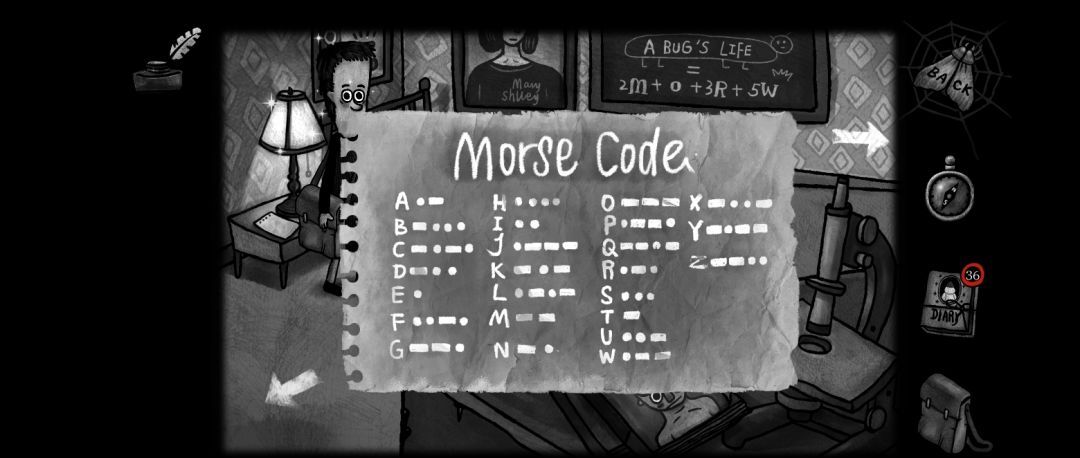 A BUG'S LIFE
=
2M + O + 3R + 5W
Mary
BACK
Morse Code
A •—
B —•••
C —•—•
D —••
E •
F ••—•
G ——•
H ••••
I ••
J •———
K —•—
L •—•—
M ——
N —•
O ———
P •——•
Q ——•—
R •—•
S •••
T —
U ••—
W •——
X —••—
Y —•——
Z ——••
36
DIARY